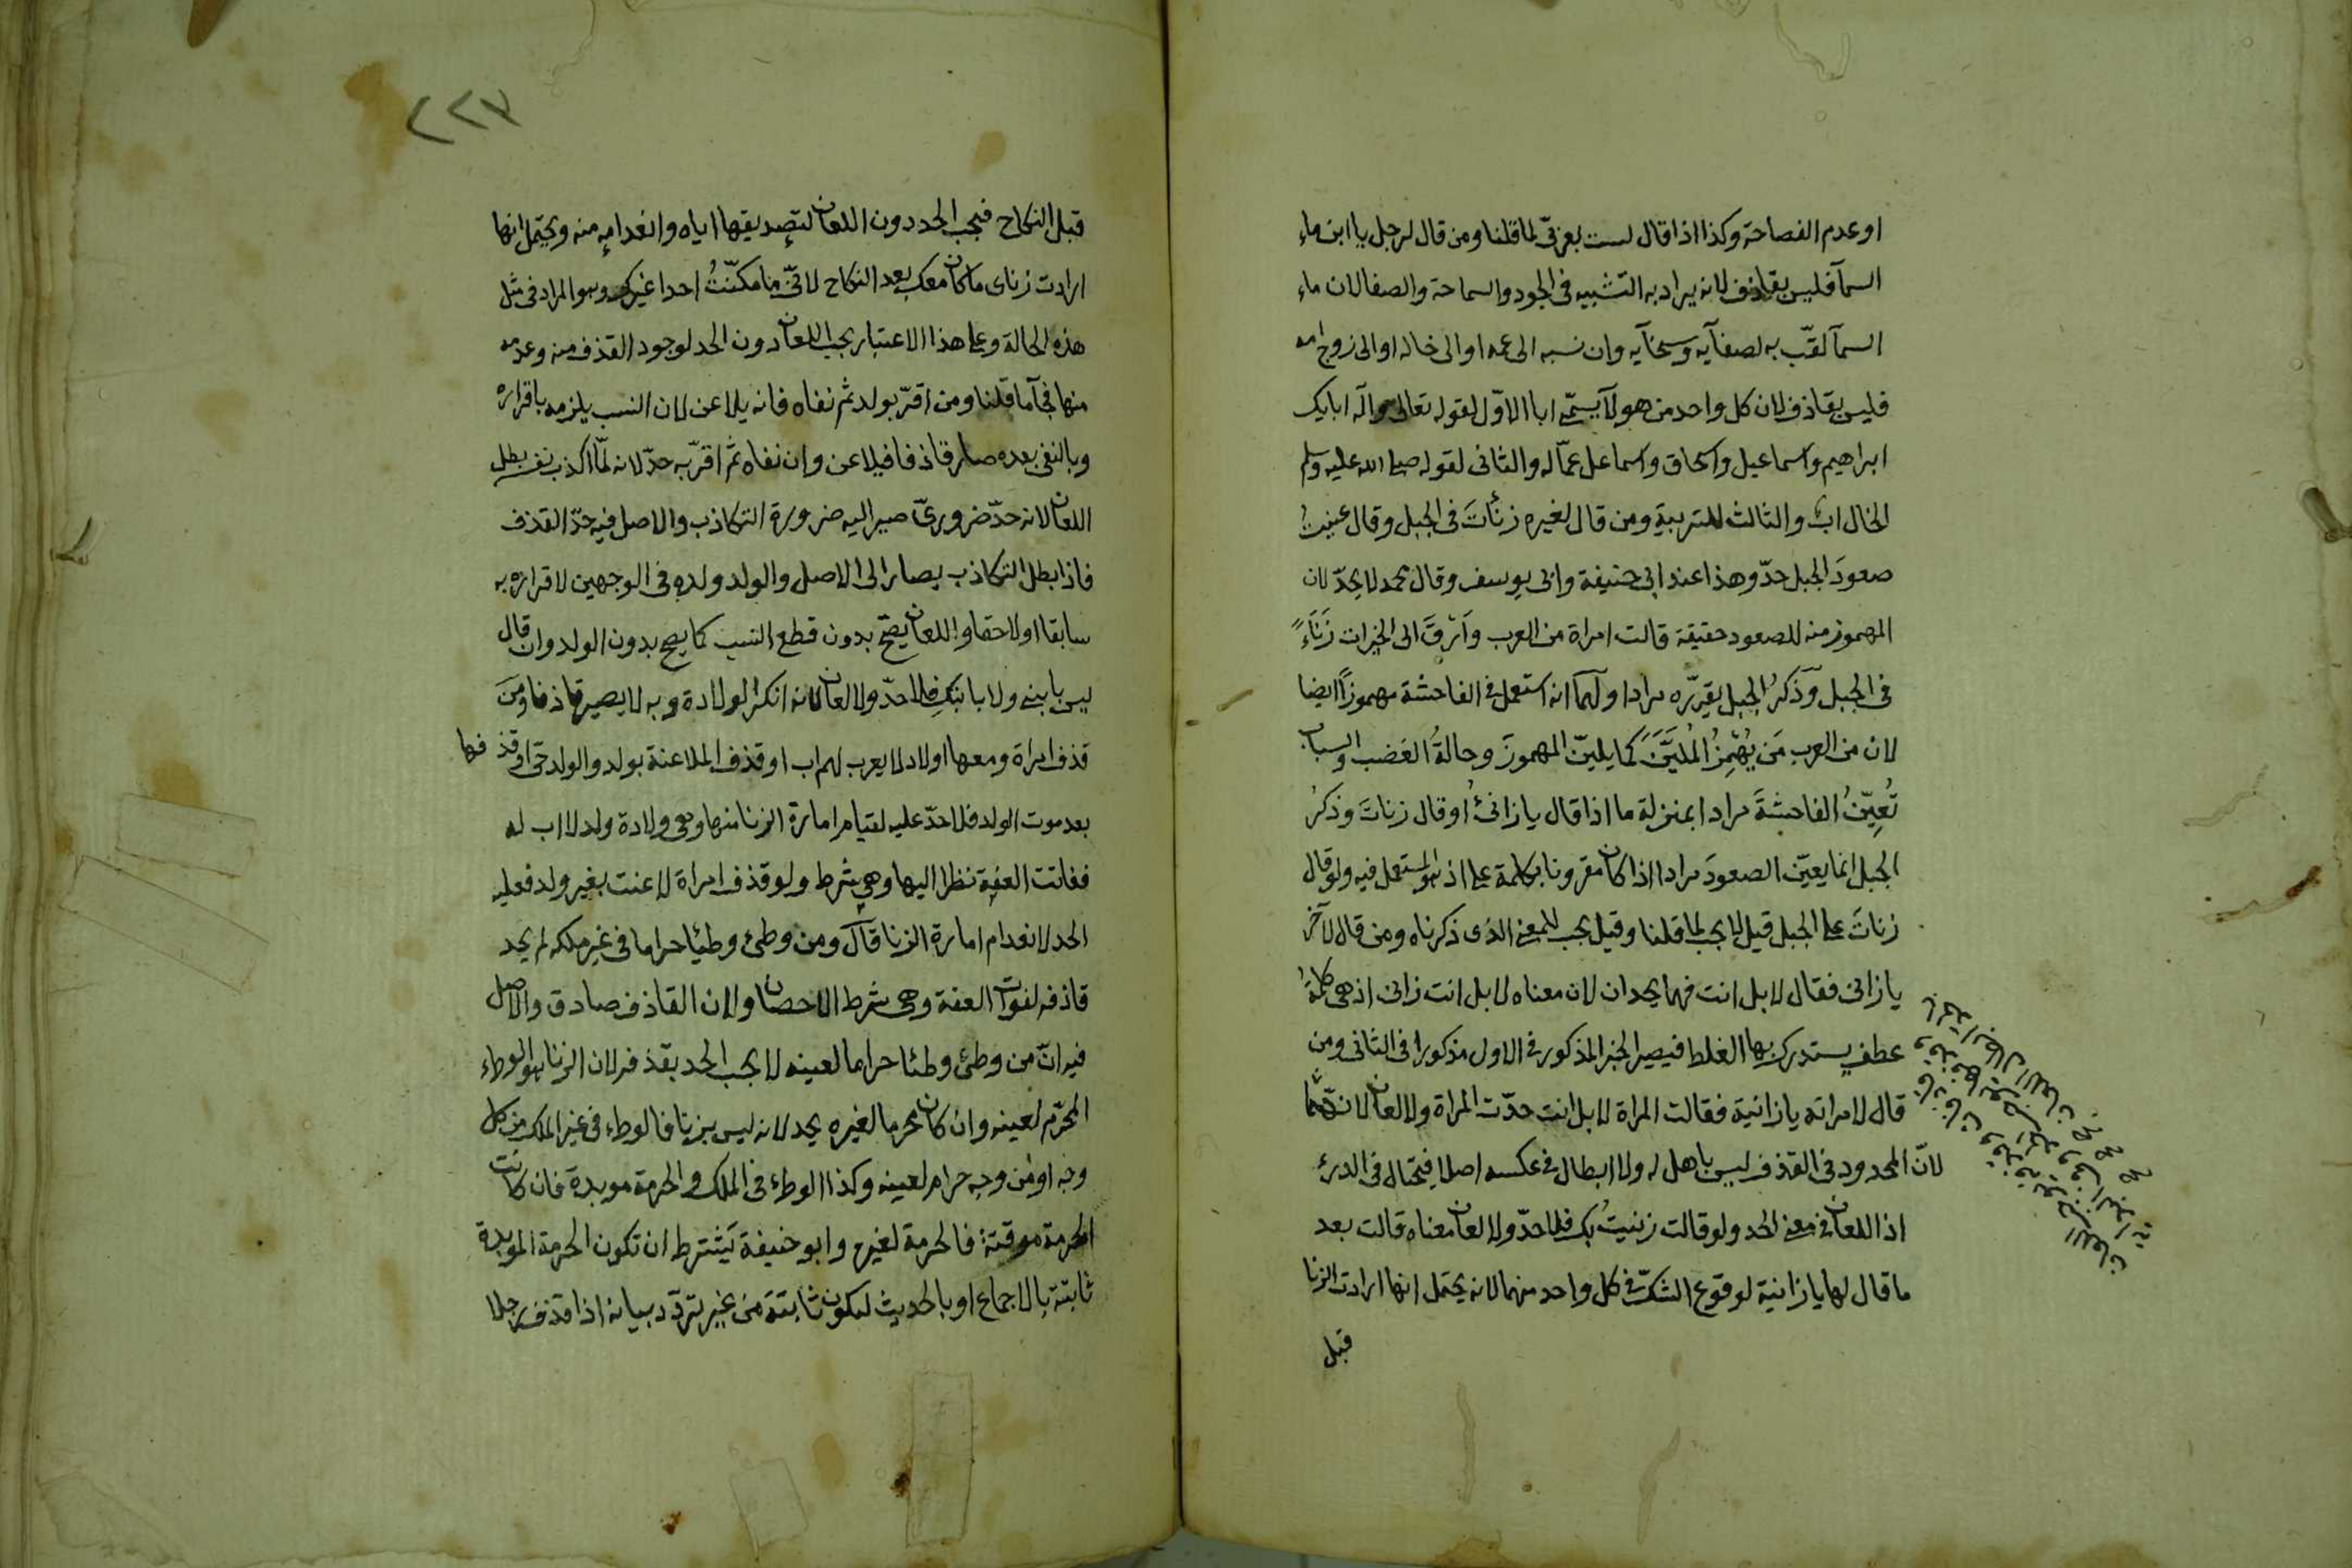 او عدم الفصاحة وكذا اذا قال لست بعربيّ لما قلنا ومن قال لرجل يا ابن ماء
السمآ فليس بقاذف لانه يراد به التشبيه في الجود والسماحة والصفا لان ماء
السمآ لقّب به لصفآيه وسخآيه وان نسبه الى عمه او الى خاله او الى زوج امه
فليس بقاذف لان كل واحد من هولآ يسمّى ابا الاوّل لقوله تعالى واله ابايك
ابراهيم واسماعيل واسحاق واسماعل عمّا له والثانى لقوله صلى الله عليه وسلم
الخال اب والثالث للتربية ومن قال لغيره زنأت في الجبل وقال عنيتُ
صعودَ الجبل حدّ وهذا عند ابى حنيفة وابى يوسف وقال محمد لا يحدّ لان
المهموز منه للصعود حقيقة قالت امراة من العرب وَارْقَ الى الخيرات زَنَاءً
في الجبل وَذكرُ الجبل يقرّره مرادا ولهمآ انه استعمل في الفاحشة مهموزاً ايضا
لان من العرب مَن يُهْمِزُ المُليَّنَ كما يليّن المهموزَ وحالةُ الغضب والسباب
تُعيّنُ الفاحشةَ مرادا بمنزلة ما اذا قال يا زانئُ او قال زناتَ وذكرُ
الجبل انما يعيّن الصعودَ مرادا اذا كان مقرونا بكلمة على اذ هو المستعمل فيه ولو قال
زناتَ على الجبل قيل لا يجب لما قلنا وقيل يجب للمعنى الذى ذكرناه ومن قال لآخر
يا زانى فقال لا بل انت فهما يحدان لان معناه لا بل انت زانى اذ هى كلمةُ
عطف يستدرك بها الغلط فيصير الخبر المذكور في الاول مذكورا في الثانى ومن
قال لامراته يا زانية فقالت المراة لا بل انت حدّت المراة ولا لعان لانهما
لانّ المحدود في القذف ليس باهل له ولا ابطال في عكسه اصلا فيحتال في الدرئ
اذ اللعان في معنى الحد ولو قالت زنيتُ بك فلا حدّ ولا لعان معناه قالت بعد
ما قال لها يا زانية لوقوع الشكّ في كل واحد منهما لانه يحتمل انها ارادت الزنا
قبل
٢٢٧
قبل النكاح فيجب الحد دون اللعان لتصديقها اياه وانعدامه منه ويحتمل انها
ارادت زناى ما كان معك بعد النكاح لانّى ما مكنّتُ احدا غيرك وهو المراد في مثل
هذه الحالة وعلى هذا الاعتبار يجب اللعان دون الحد لوجود القذف منه وعدمه
منها فجآ ما قلنا ومن اقرّ بولد ثم نفاه فانه يلاعن لان النسب يلزمه باقراره
وبالنفى بعده صار قاذفا فيلاعن وان نفاه ثم اقرّ به حدّ لانه لمّا اكذب نفسه بطل
اللعان لانه حدّ ضروريّ صير اليه ضرورة التكاذب والاصل فيه حدّ القذف
فاذا بطل التكاذب يصار الى الاصل والولد ولده في الوجهين لاقراره به
سابقا او لاحقا واللعان يصحّ بدون قطع النسب كما يصح بدون الولد وان قال
ليس بابنى ولا بابنكِ فلا حدّ ولا لعان لانه انكر الولادة وبه لا يصير قاذفا ومَن
قذف امراة ومعها اولاد لا يعرب لهم اب او قذف الملاعنة بولد والولد حى او قذفها
بعد موت الولد فلا حدّ عليه لقيام امارة الزنا منها وهى ولادة ولد لا اب له
ففاتت العفة نظرا اليها وهى شرط ولو قذف امراة لاعنت بغير ولد فعليه
الحد لانعدام امارة الزنا قال ومن وطئ وطيًا حراما في غير ملكه لم يحد
قاذفه لفوات العفة وهى شرط الاحصان ولان القاذف صادق والاصل
فيه انّ من وطئ وطئا حراما لعينه لا يجب الحد بقذفه لان الزنا هو الوطء
المحرّم لعينه وان كان محرما لغيره يحد لانه ليس بزنا فالوطء في غير الملك من كل
وجه او من وجه حرام لعينه وكذا الوطء في الملك والحرمة موبدة فان كانت
الحرمة موقتة فالحرمة لغيره وابو حنيفة يَشترط ان تكون الحرمة الموبدة
ثابتة بالاجماع او بالحديث ليكون ثابتة من غير تردّد بيانه اذا قذف رجلا